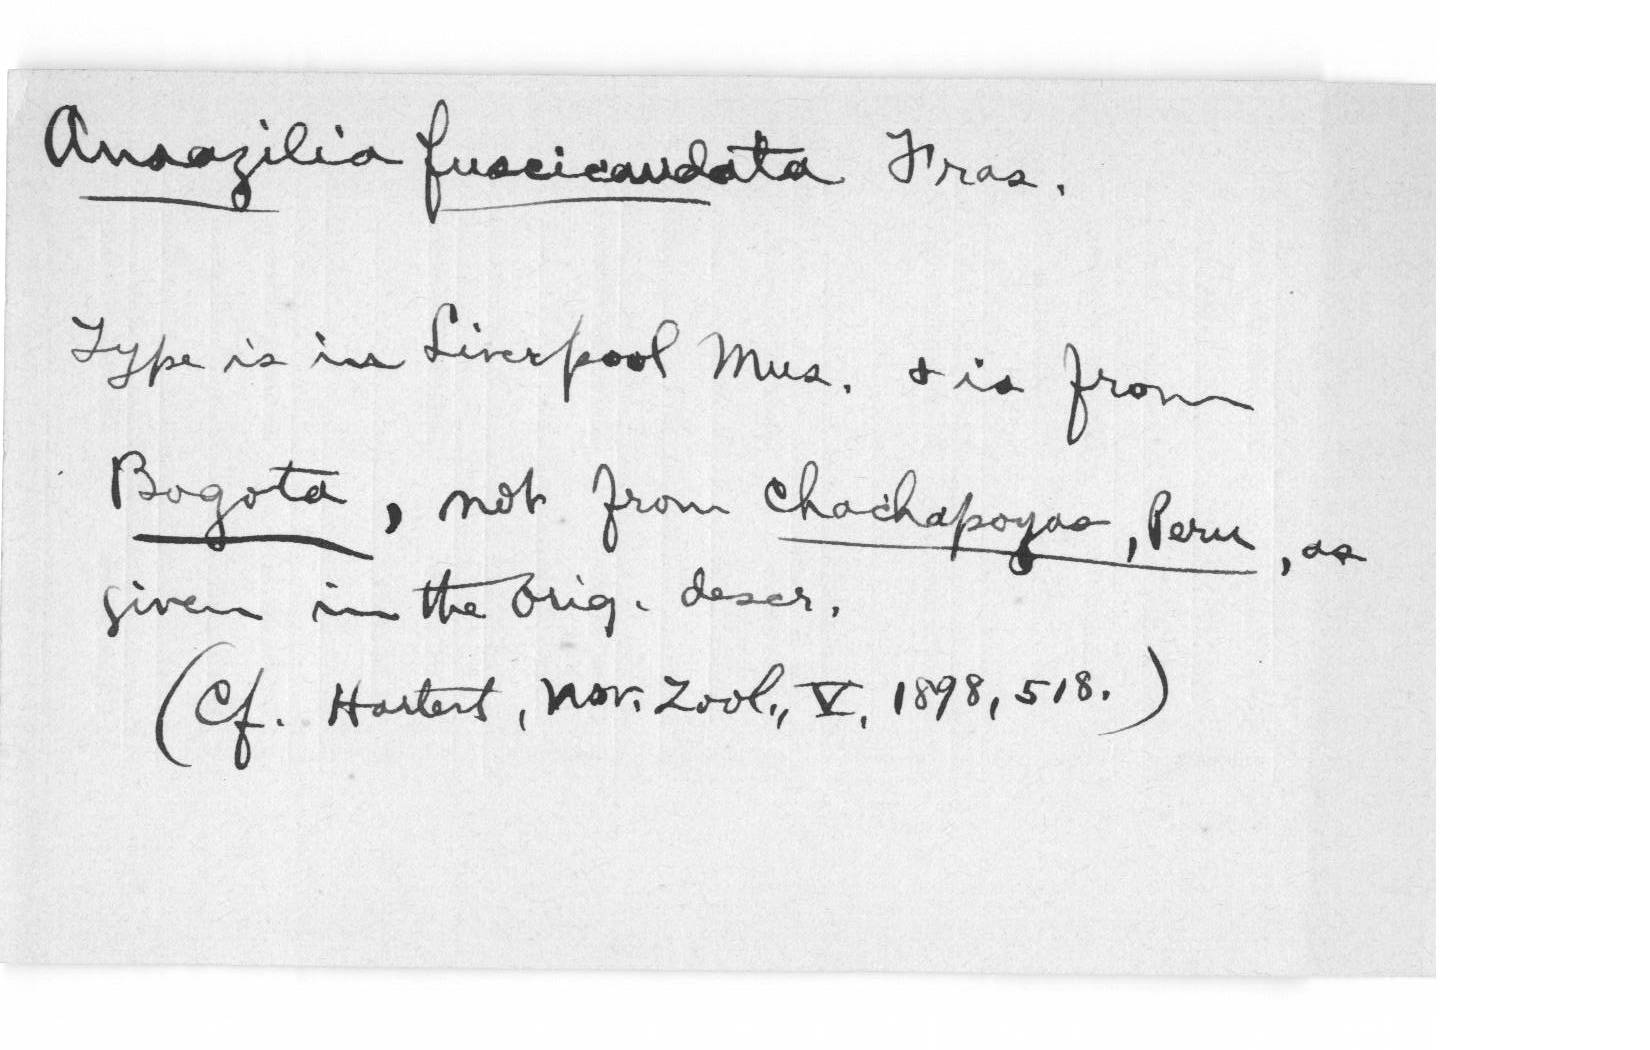 Amazilia fuscicaudata Fras.
Type is in Liverpool Mus. & is from
Bogota, not from Chachapoyas, Peru, as
given in the orig. descr.
(Cf. Hartert, Nov. Zool., V, 1898, 518.)